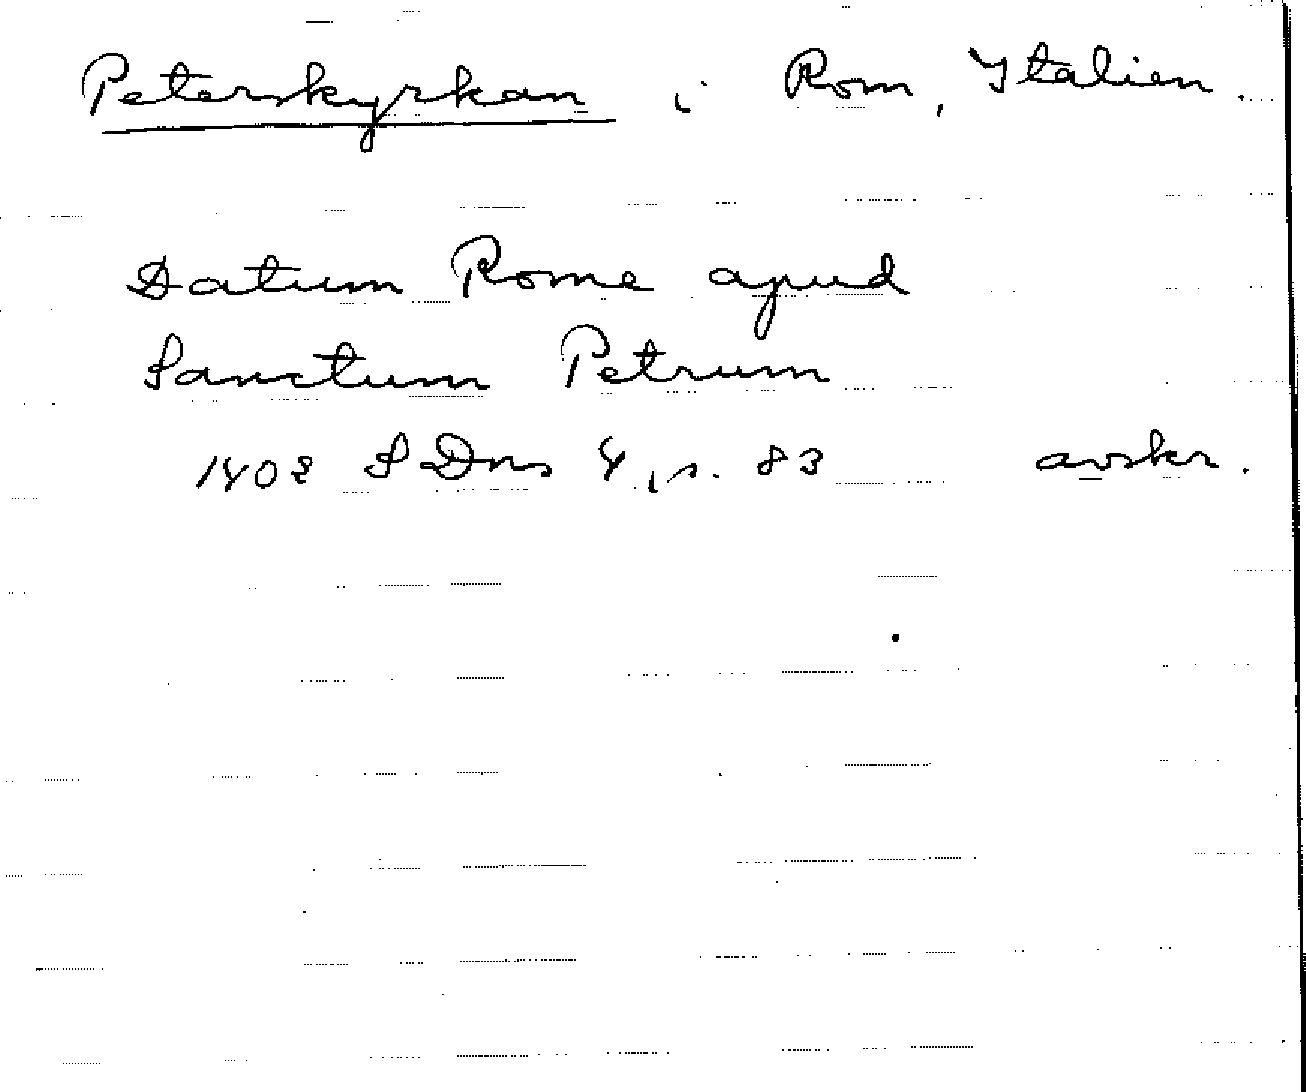 Peterskyrkan i Rom, Italien.
Datum Rome apud
Sanctum Petrum
1402 SDns 4, s. 83 avskr.